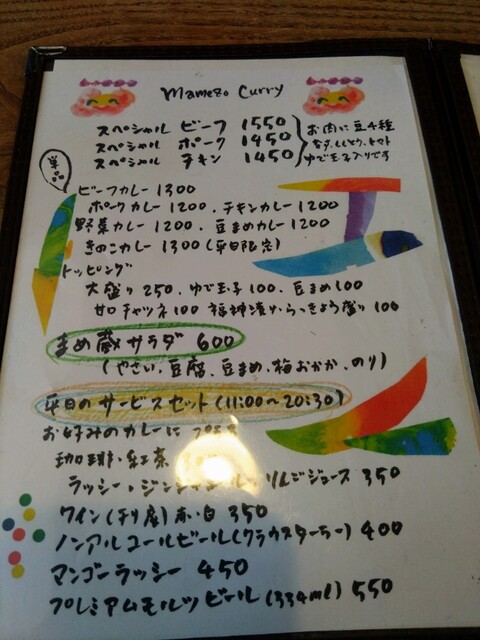 mamezo curry
スペシャル ビーフ 1550
スペシャル ポーク 1450
スペシャル チキン 1450
お肉に豆4種
なす、ししとう、トマト
ゆで玉子入りです
単品
ビーフカレー 1300
ポークカレー 1200、チキンカレー 1200
野菜カレー 1200、豆まめカレー 1200
きのこカレー 1300 (平日限定)
トッピング
大盛り 250、ゆで玉子 100、豆まめ 100
甘口チャツネ 100 福神漬け・らっきょう盛り 100
まめ蔵サラダ 600
(やさい、豆腐、豆まめ、梅おかか、のり)
平日のサービスセット (11:00〜20:30)
お好みのカレーに
珈琲・紅茶
ラッシー・ジン りんごジュース 350
ワイン(チリ産)赤・白 350
ノンアルコールビール(クラウスターラー) 400
マンゴーラッシー 450
プレミアムモルツビール (334ml) 550